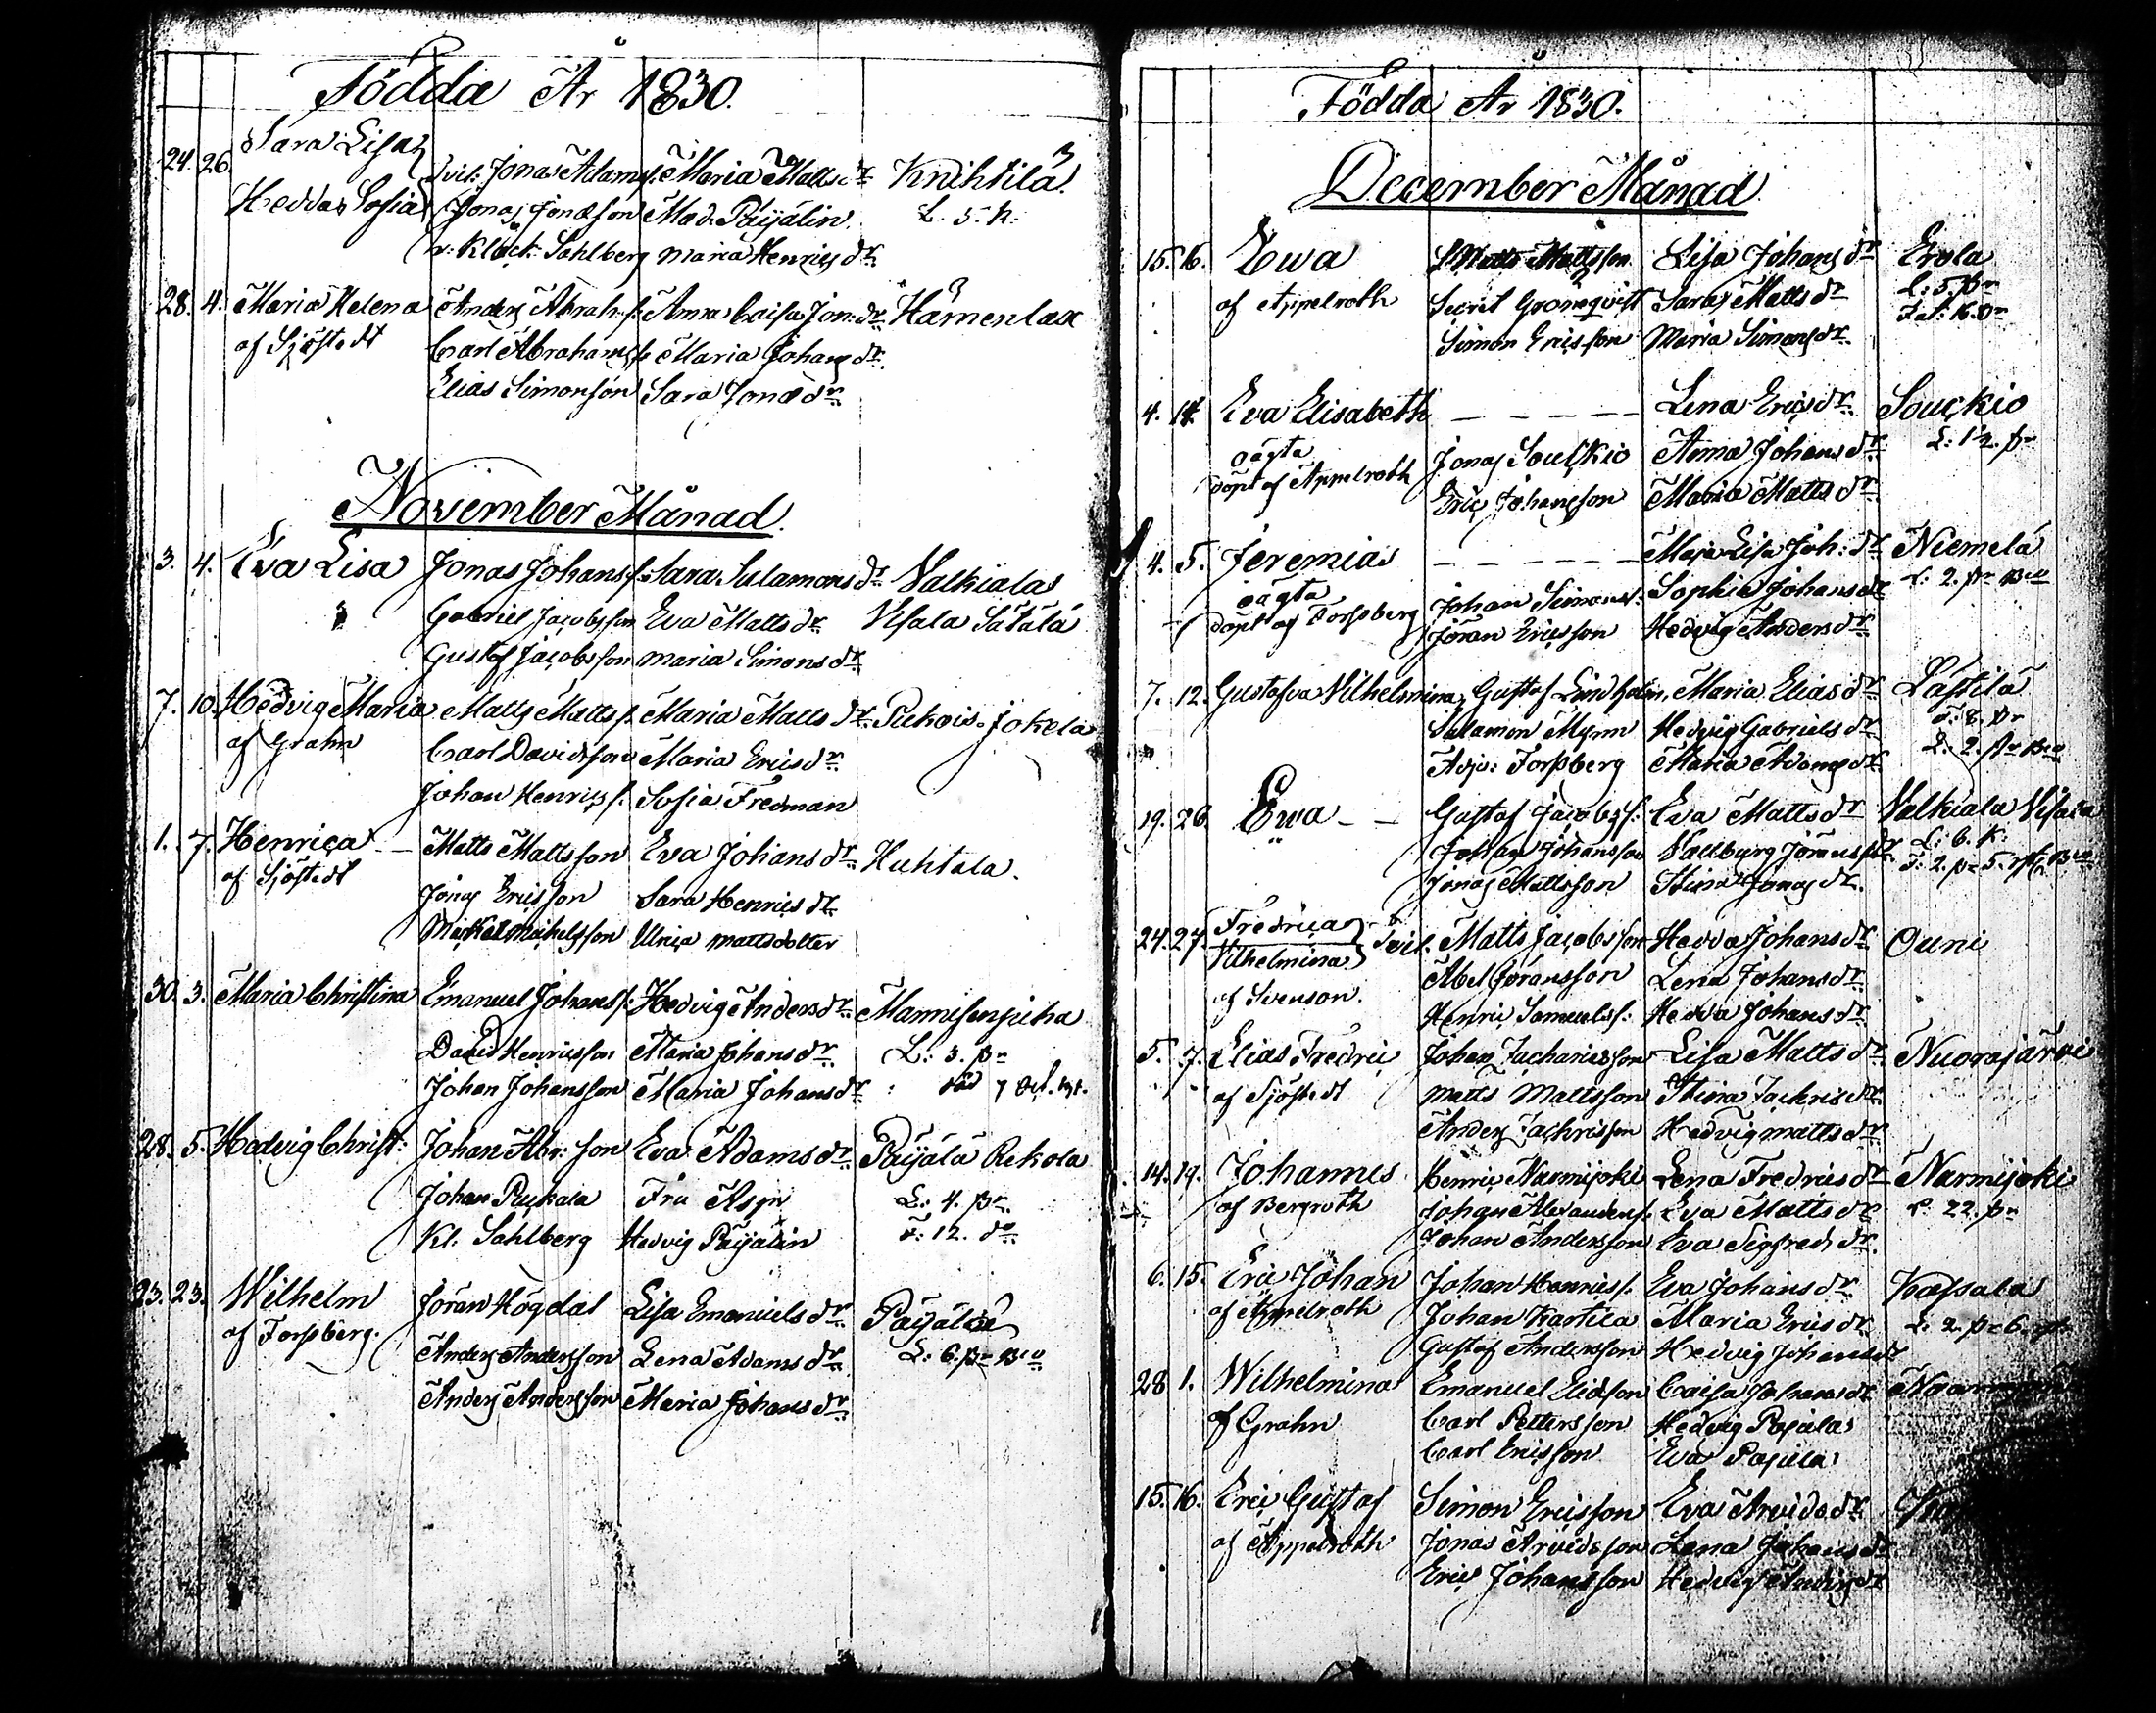 Födda År 1830.
Sara Lisa
24. 26. Tvil: Jonas Adamss: Maria Matts dr Knihtilä.
Hedda Sofia Jonas Jonasson Mad. Päijälin. L. 5. K.
v: Klock. Sahlberg Maria Henrics dr
28. 4. Maria Helena Anders Abrah: s: Anna Caisa Jon: dr Hämenlax
af Sjöstedt Carl Abrahamss: Maria Johans dr.
Elias Simonson Sara Jonæ dr
November Månad.
3. 4. Eva Lisa Jonas Johans s: Sara Salamons dr Valkiala
Gabriel Jacobsson Eva Matts dr Visala Sätälä
Gustaf Jacobsson Maria Simons dr
7. 10. Hedvig Maria Matts Matts s. Maria Matts dr Jokela
af Grahn Carl Davidsson Maria Erics dr
Johan Henrics s. Sofia Fredman
1. 7. Henrica Matts Mattsson Eva Johans dr Huhtala.
af Sjöstedt Jonas Ericsson Sara Henrics dr
Michel Michelsson Ulrica Mattsdotter
30. 3. Maria Christina Emanuel Johans s: Hedvig Anders dr Mannisenjuha
David Henricsson Maria Johans dr L: 3. pr
Johan Johansson Maria Johans dr
28. 5. Hedvig Christ: Johan Abr: son Eva Adams dr Päijälä Rekola
Johan Fru Asp L: 4. pr
Kl. Sahlberg Hedvig Päijälin F: 12. do
23. 23. Wilhelm Jöran Högdal Lisa Emanuels dr Päijälä
af Forssberg. Anders Andersson Lena Adams dr L: 6. pr
Anders Andersson Maria Johans dr
Födda År 1830.
December Månad
15. 16. Ewa Matts Mattsson Lisa Johans dr Erola
af Appelroth Secret Gronqvist Sara Matts dr L: 5. pr
Simon Ericsson Maria Simons dr
4. 14. Eva Elisabeth Lena Erics dr Souckio
oägta Jonas Souckio Anna Johans dr L: 12. pr
döpt af Appelroth Eric Johansson Maria Matts dr
4. 5. Jeremias Maja Lisa Joh: dr Niemelä
oägta Johan Simons s: Sophia Johans dr L: 2. pr
döpt af Forssberg Jöran Ericsson Hedvig Anders dr
7. 12. Gustafva Vilhelmina Gustaf Lindholm, Maria Elias dr Lastila
Salamon Mynn Hedvig Gabriels dr F: 8. pr
Adju: Forssberg Maria Adams dr L: 2. pr
19. 26. Ewa Gustaf Jacobs s: Eva Matts dr Valkiala Visala
" Johan Johansson Vallburg Jöransdr L: 6. K.
Jonas Mattsson Stina Jonas dr.
Fredrica
24. 27. Tvil. Matts Jacobsson Hedda Johans dr Ouni
Vilhelmina Abel Göransson Lena Johans dr
af Svenson. Henric Samuels s: Hedda Johans dr
5. 7. Elias Fredric Johan Zachariesson Lisa Matts dr Nuorajärvi
af Sjöstedt Matts Mattsson Stina Zachris dr
Anders Zachrisson Hedvig Matts dr
14. 19. Johannes Henric Narmijoki Lena Fredrics dr Narmijoki
af Bergroth Johan Alexanders: Eva Matts dr L: 22. pr
Johan Andersson Eva Sigfreds dr.
6. 15. Eric Johan Johan Henrics s. Eva Johans dr Kassala
af Appelroth Johan Kartila Maria Erics dr
Gustaf Andersson Hedvig Johans dr
28 1. Wilhelmina Emanuel Eliasson Caisa Johans dr
af Grahn Carl Pettersson Hedvig Pajula
Carl Ericsson Eva Pajula
15. 16. Eric Gustaf Simon Ericsson Eva Arvids dr
af Appelroth Jonas Arvidsson Lena Johans dr
Eric Johansson Hedvig dr